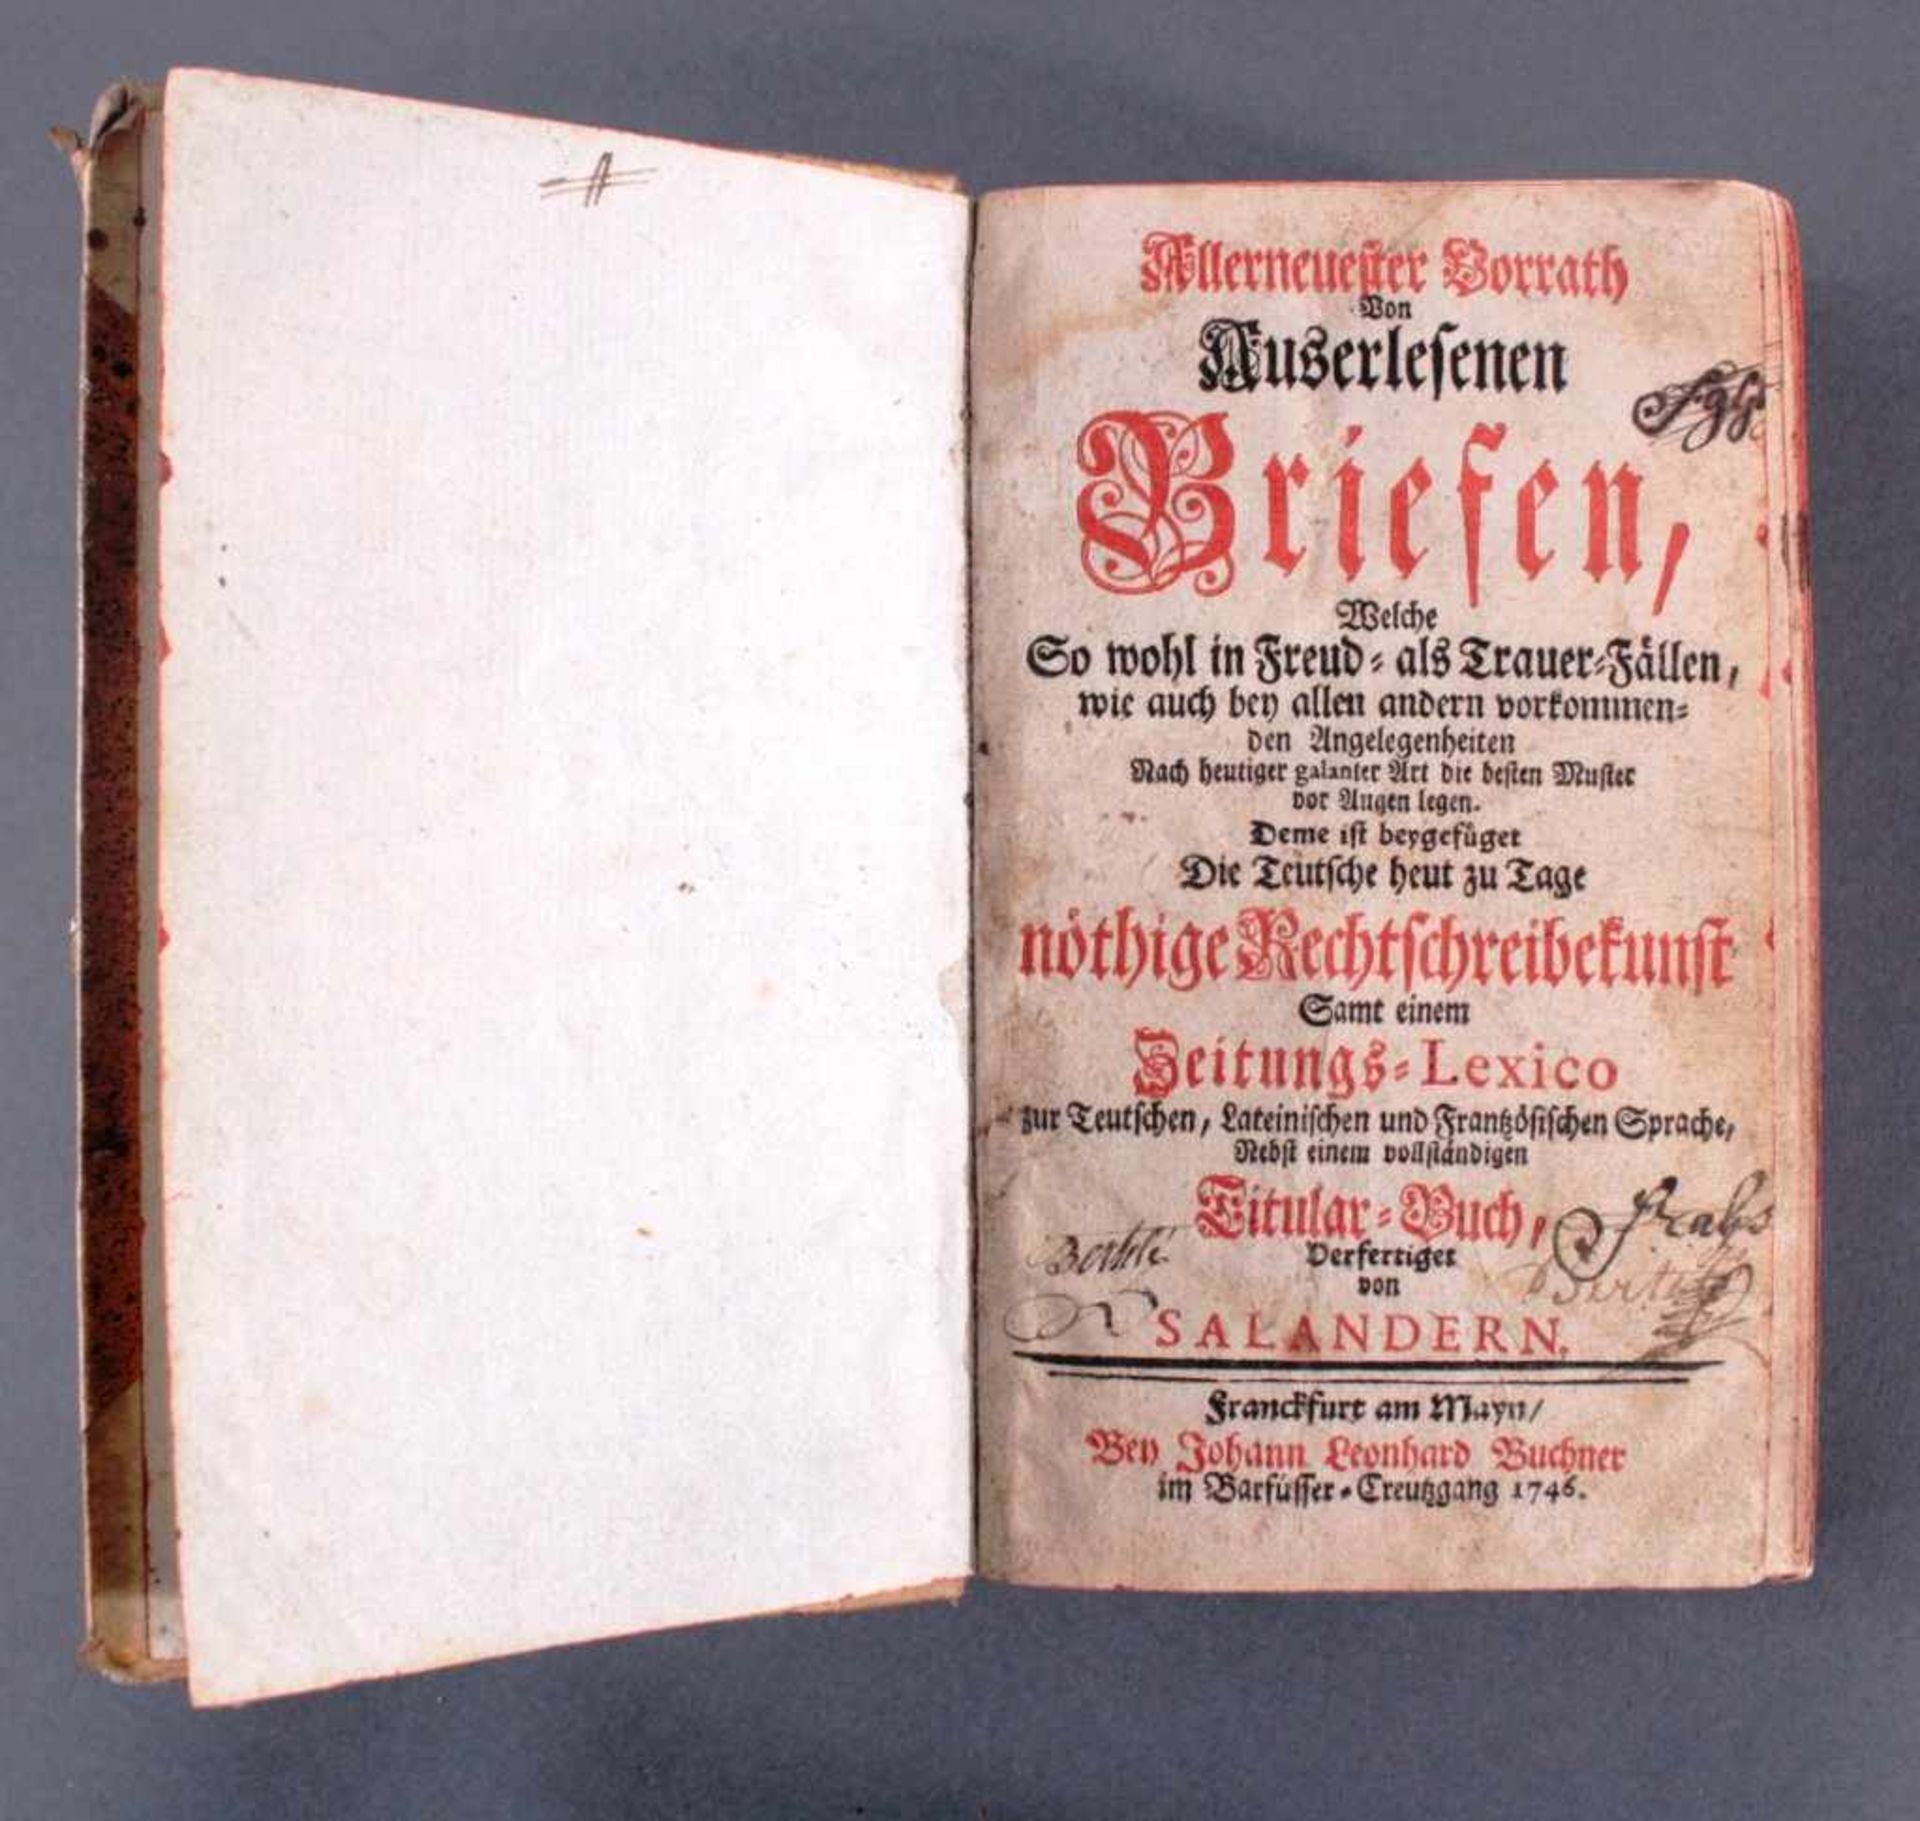 Allerneuester Vorrath
Von
Auserlesenen
Briefen,
Welche
So wohl in Freud- als Trauer-Fällen,
wie auch bey allen andern vorkommen-
den Angelegenheiten
Nach heutiger galanter Art die besten Muster
vor Augen legen.
Deme ist beygefüget
Die Teutsche heut zu Tage
nöthige Rechtschreibekunst
Samt einem
Zeitungs-Lexico
zur Teutschen, Lateinischen und Frantzösischen Sprache,
Nebst einem vollständigen
Titular-Buch,
Verfertiget
von
SALANDERN.
Franckfurt am Mayn/
Bey Johann Leonhard Buchner
im Barfüsser-Creutzgang 1746.